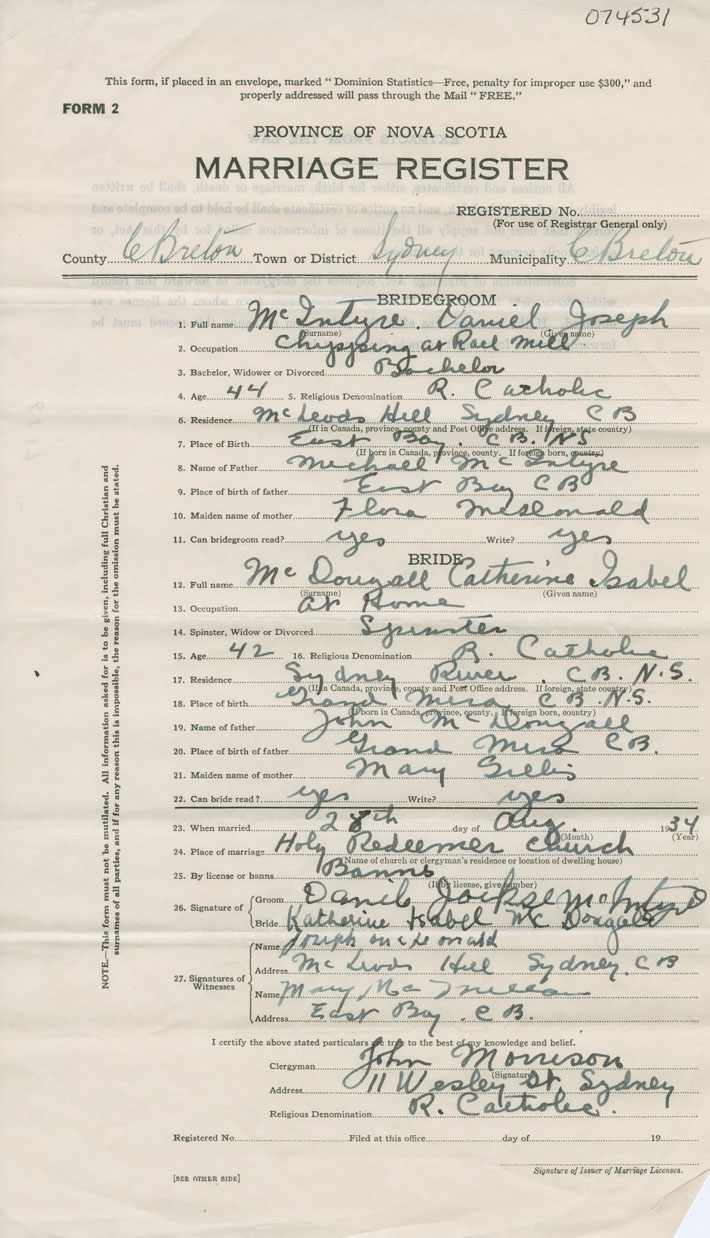 074531
This form, if placed in an envelope, marked " Dominion Statistics—Free, penalty for improper use $300," and
properly addressed will pass through the Mail " FREE."
FORM 2
PROVINCE OF NOVA SCOTIA
MARRIAGE REGISTER
REGISTERED No.
(For use of Registrar General only)
County C Breton Town or District Sydney Municipality C Breton
BRIDEGROOM
1. Full name McIntyre. Daniel Joseph
(Surname) (Given name)
2. Occupation Chypping at Rael Mill
3. Bachelor, Widower or Divorced Bachelor
4. Age 44 5. Religious Denomination R. Catholic
6. Residence McLeods Hill Sydney CB
(If in Canada, province, county and Post Office address. If foreign, state country)
7. Place of Birth East Bay. C B. N S
(If born in Canada, province, county. If foreign born, country)
8. Name of Father Michael McIntyre
9. Place of birth of father East Bay C B
10. Maiden name of mother Flora McDonald
11. Can bridegroom read? yes Write? yes
BRIDE
12. Full name McDougall Catherine Isabel
(Surname) (Given name)
13. Occupation at Home
14. Spinster, Widow or Divorced Spinster
15. Age 42 16. Religious Denomination R. Catholic
17. Residence Sydney River. C B. N.S.
(If in Canada, province, county and Post Office address. If foreign, state country)
18. Place of birth Grand Mira C B. N.S.
(If born in Canada, province, county. If foreign born, country)
19. Name of father John McDougall
20. Place of birth of father Grand Mira C B.
21. Maiden name of mother Mary Gillis
22. Can bride read? yes Write? yes
23. When married 28th day of Aug. 1934
(Month) (Year)
24. Place of marriage Holy Redeemer Church
(Name of church or clergyman's residence or location of dwelling house)
25. By license or banns Banns
(If by license, give number)
26. Signature of Groom Daniel McIntyre
Bride Katherine Isabel McDougall
27. Signatures of Witnesses
Name Joseph McDonald
Address McLeods Hill Sydney. C B
Name Mary
Address East Bay. C B.
I certify the above stated particulars are true to the best of my knowledge and belief.
Clergyman John Morrison
(Signature)
Address 11 Wesley St. Sydney
Religious Denomination R. Catholic.
Registered No. Filed at this office day of 19
Signature of Issuer of Marriage Licenses.
[SEE OTHER SIDE]
NOTE.—This form must not be mutilated. All information asked for is to be given, including full Christian and
surnames of all parties, and if for any reason this is impossible, the reason for the omission must be stated.